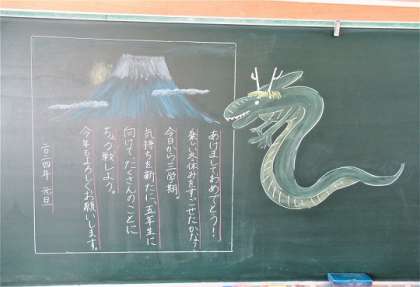 あけましておめでとう！
楽しい冬休みをすごせたかな？
今日から三学期。
気持ちを新たに、五年生に
向けてたくさんのことに
ちょう戦しよう。
今年もよろしくお願いします。
二〇二四年 元日